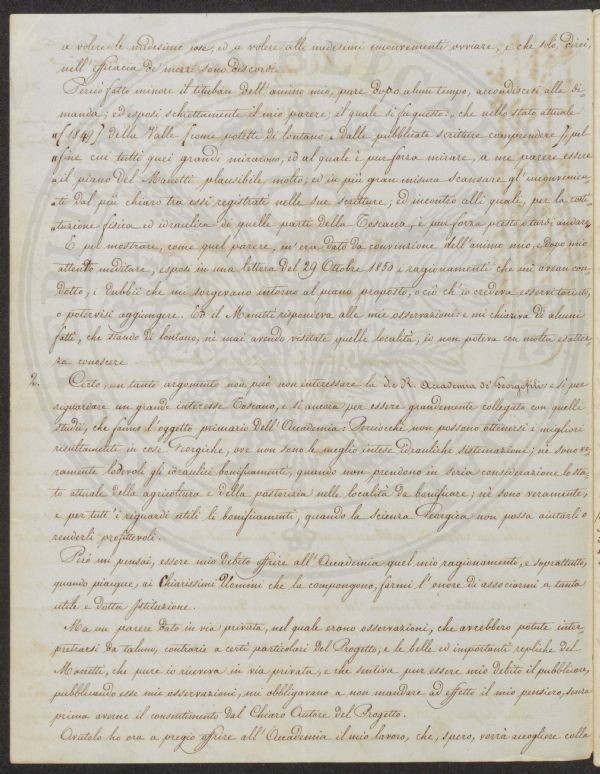 a volere le medesime cose, ed a volere alle medesimi inconvenienti ovviare, e che solo, direi,
nell'efficacia de' mezzi sono discordi.
Perciò fatto minore il titubare dell'animo mio, pure dopo alcun tempo, accondiscesi alla di-
manda; ed esposi schiettamente il mio parere; il quale si fu questo:, che nello stato attuale
"(1849) della Valle (come potetti di lontano e dalle pubblicate scritture comprendere), pel
"fine cui tutti quei grandi mirarono, ed al quale è pur forza mirare, a me parere essere
"il piano del Manetti plausibile molto; ed in più gran misura scansare gl'inconvenien-
"ti dal più chiaro tra essi registrati nelle sue scritture; ed incontro alli quali, per la costi-
"tuzione fisica ed idraulica di quelle parti della Toscana, è pur forza presto o tardi andare,
E pel mostrare, come quel parere, m'era dato da convinzione dell'animo mio, e dopo mio
attento meditare, esposi in una lettera del 29 Ottobre 1850 i ragionamenti che mi avean con-
dotto, i dubbii che mi sorgevano intorno al piano proposto, o ciò ch'io credeva esservi taciuto,
o potervisi aggiungere. Ed il Manetti rispondeva alle mie osservazioni: e mi chiariva di alcuni
fatti, che stando di lontano, nè mai avendo visitate quelle località, io non poteva con molta esattez-
za conoscere
2. Certo, un tanto argomento non può non interessare la I. e R. Accademia de' Georgofili; e si per
riguardare un grande interesse Toscano, e si ancora per essere grandemente collegato con quelli
studii, che fanno l'oggetto primario dell'Accademia: Perciocchè non possono ottenersi i migliori
risultamenti in cose Georgiche, ove non sono le meglio intese idrauliche sistemazioni; nè sono ve-
ramente lodevoli gli idraulici bonificamenti, quando non prendono in seria considerazione lo sta-
to attuale della agricoltura e della pastorizia nelle località da bonificare; nè sono veramente,
e per tutt'i riguardi utili le bonificamenti, quando la scienza Georgica non possa aiutarli o
renderli profittevoli.
Però mi pensai, essere mio debito offrire all'Accademia quel mio ragionamento, e soprattutto,
quando piacque, ai Chiarissimi Uomini che la compongono, farmi l'onore di associarmi a tanta
utile e dotta Istituzione.
Ma un parere dato in via privata, nel quale erano osservazioni, che avrebbero potute inter-
pretrarsi da taluni, contrarie a certi particolari del Progetto, e le belle ed importanti repliche del
Manetti, che pure io riceveva in via privata, e che sentiva pur essere mio debito il pubblicare,
pubblicando esse mie osservazioni, mi obbligavano a non mandare ad effetto il mio pensiero, senza
prima averne il consentimento dal Chiaro Autore del Progetto.
Avutolo ho ora a pregio offrire all'Accademia il mio lavoro, che, spero, vorrà accogliere colla